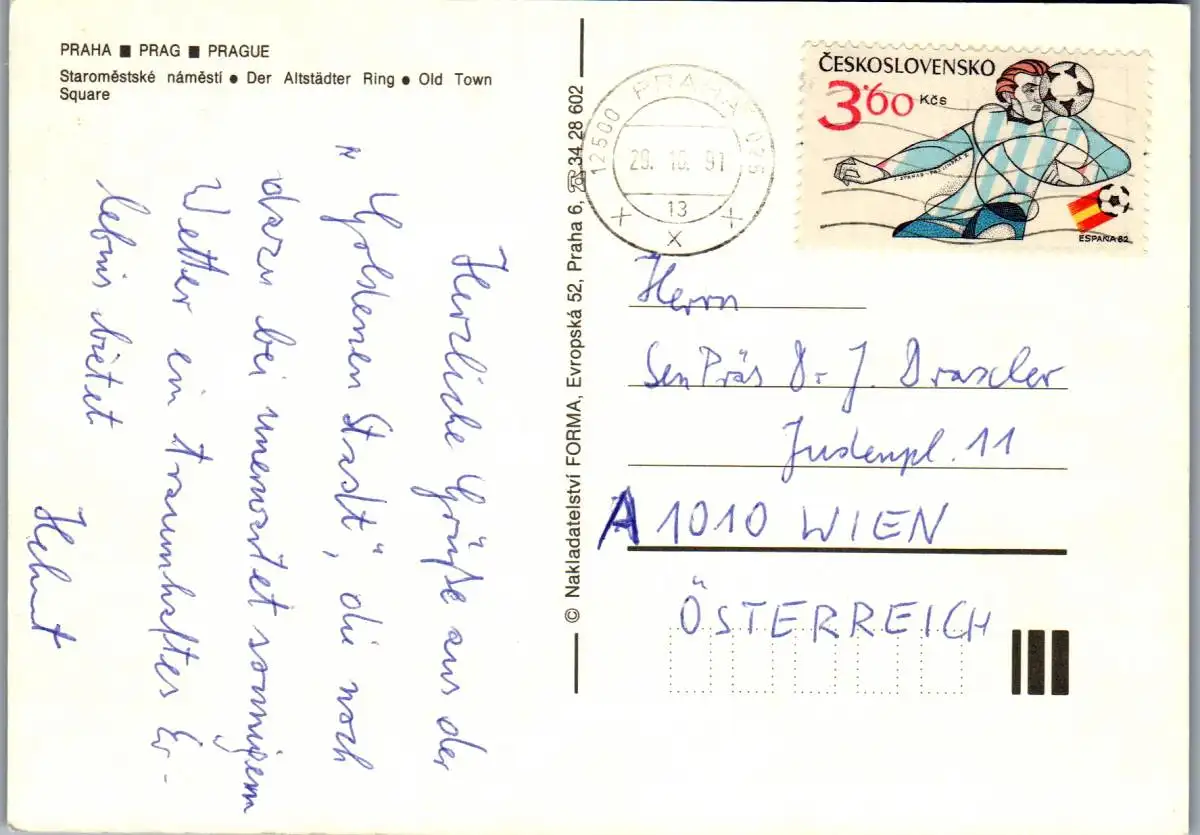 PRAHA ■ PRAG ■ PRAGUE
Staroměstské náměstí ● Der Altstädter Ring ● Old Town
Square
Herzliche Grüße aus der
„Goldenen Stadt“, die noch
dazu bei unerwartet sonnigem
Wetter ein traumhaftes Er-
lebnis bietet
Helmut
© Nakladatelství FORMA, Evropská 52, Praha 6, 34 28 602
12500 PRAHA 025
29. 10. 91
13
ČESKOSLOVENSKO
3.60 Kčs
ESPAÑA 82
Herrn
Sen Präs Dr J. Draxler
Judenpl. 11
A 1010 WIEN
ÖSTERREICH